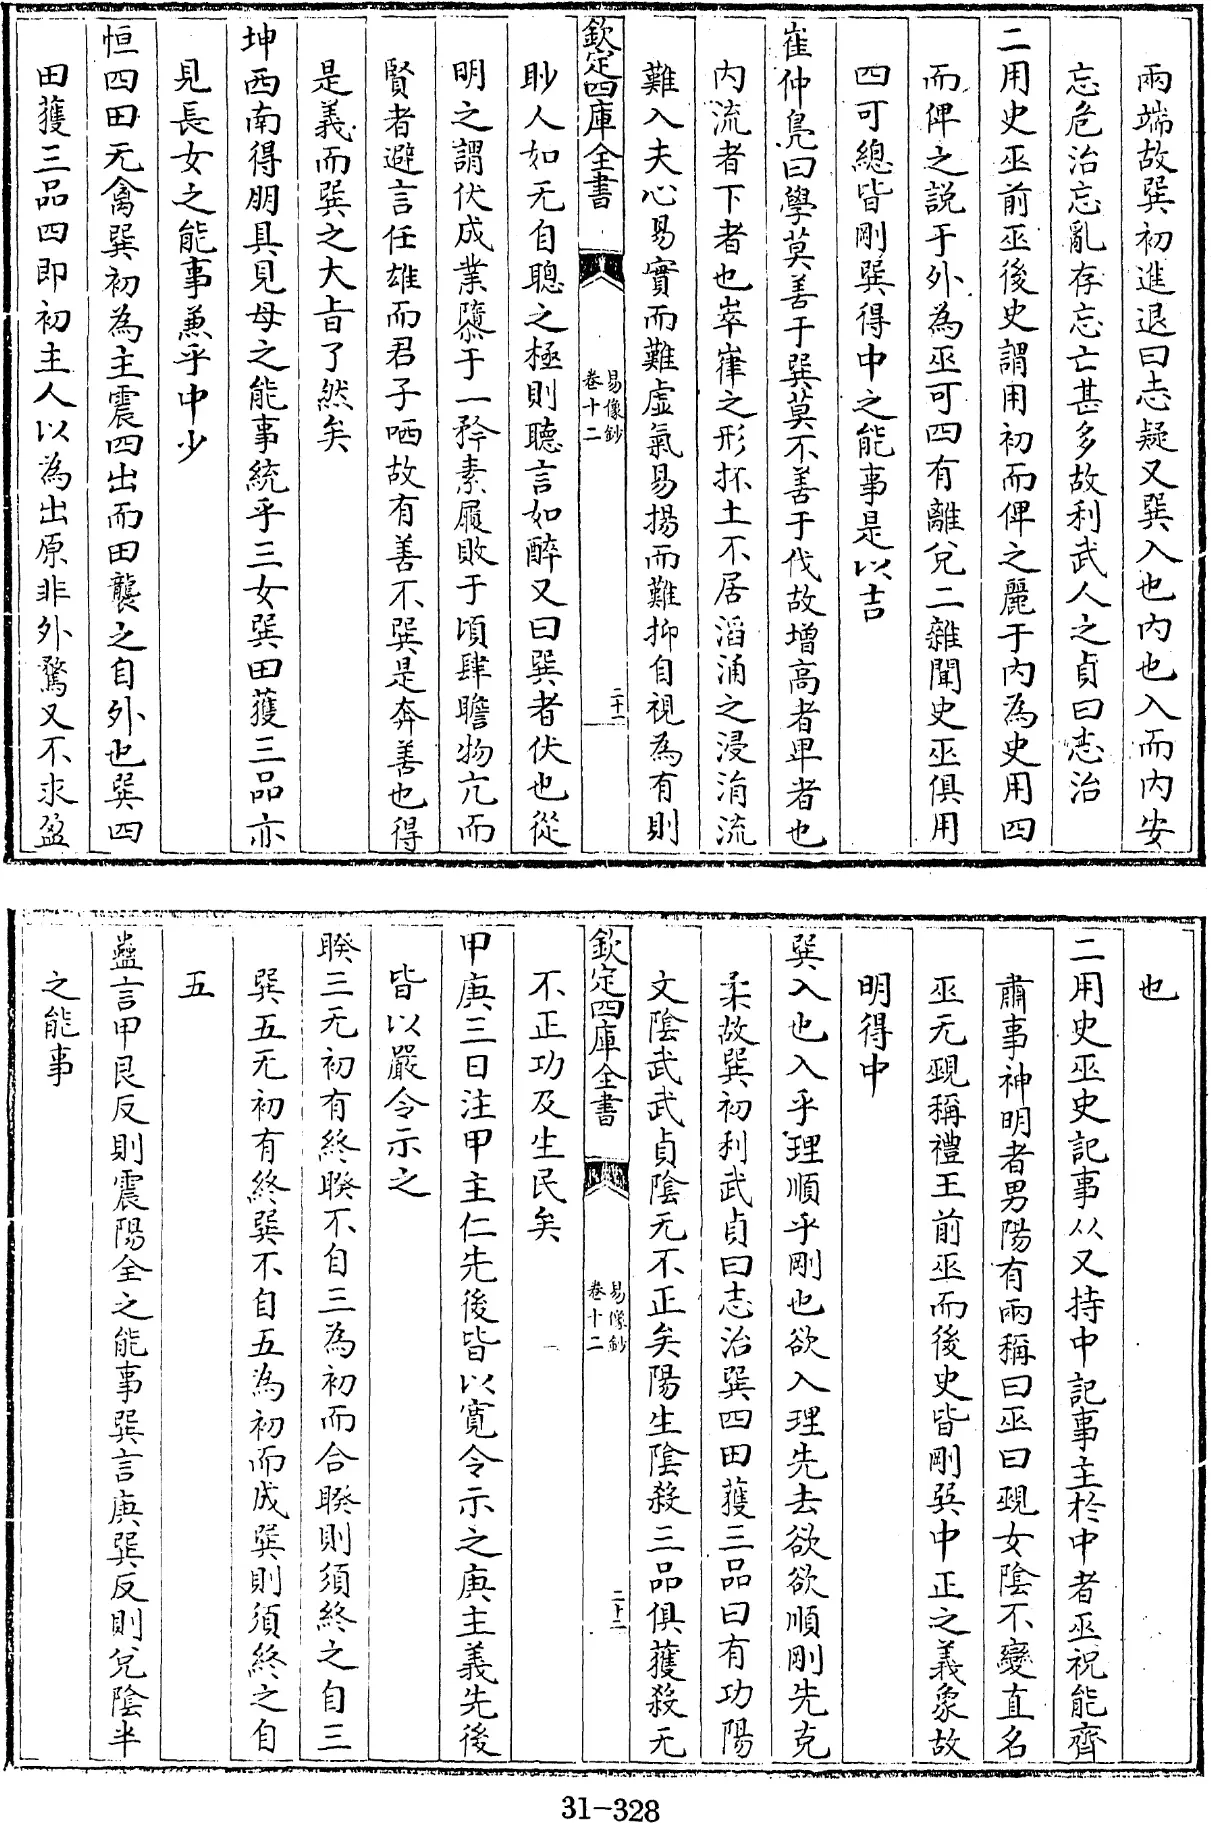 兩端故巽初進退曰志疑又巽入也内也入而内安
忘危治忘亂存忘亡甚多故利武人之貞曰志治
二用史巫前巫後史謂用初而俾之麗于内為史用四
而俾之説于外為巫可四有離兌二雜聞史巫俱用
四可總皆剛巽得中之能事是以吉
崔仲鳧曰學莫善于巽莫不善于伐故增高者卑者也
内流者下者也崒嵂之形抔土不居滔涌之浸涓流
難入夫心易實而難虛氣易揚而難抑自視為有則
欽定四庫全書
易像鈔
卷十二
二十一
眇人如无自聰之極則聽言如醉又曰巽者伏也從
明之謂伏成業隳于一矜素履敗于頃肆瞻物亢而
賢者避言任雄而君子哂故有善不巽是奔善也得
是義而巽之大旨了然矣
坤西南得朋具見母之能事統乎三女巽田獲三品亦
見長女之能事兼乎中少
恒四田无禽巽初為主震四出而田襲之自外也巽四
田獲三品四即初主人以為出原非外騖又不求盈
也
二用史巫史記事从又持中記事主於中者巫祝能齊
肅事神明者男陽有兩稱曰巫曰覡女陰不變直名
巫无覡稱禮王前巫而後史皆剛巽中正之義象故
明得中
巽入也入乎理順乎剛也欲入理先去欲欲順剛先克
柔故巽初利武貞曰志治巽四田獲三品曰有功陽
文陰武武貞陰无不正矣陽生陰殺三品俱獲殺无
欽定四庫全書
易像鈔
卷十二
二十二
不正功及生民矣
甲庚三日注甲主仁先後皆以寛令示之庚主義先後
皆以嚴令示之
睽三无初有終睽不自三為初而合睽則須終之自三
巽五无初有終巽不自五為初而成巽則須終之自
五
蠱言甲艮反則震陽全之能事巽言庚巽反則兌陰半
之能事
31-328